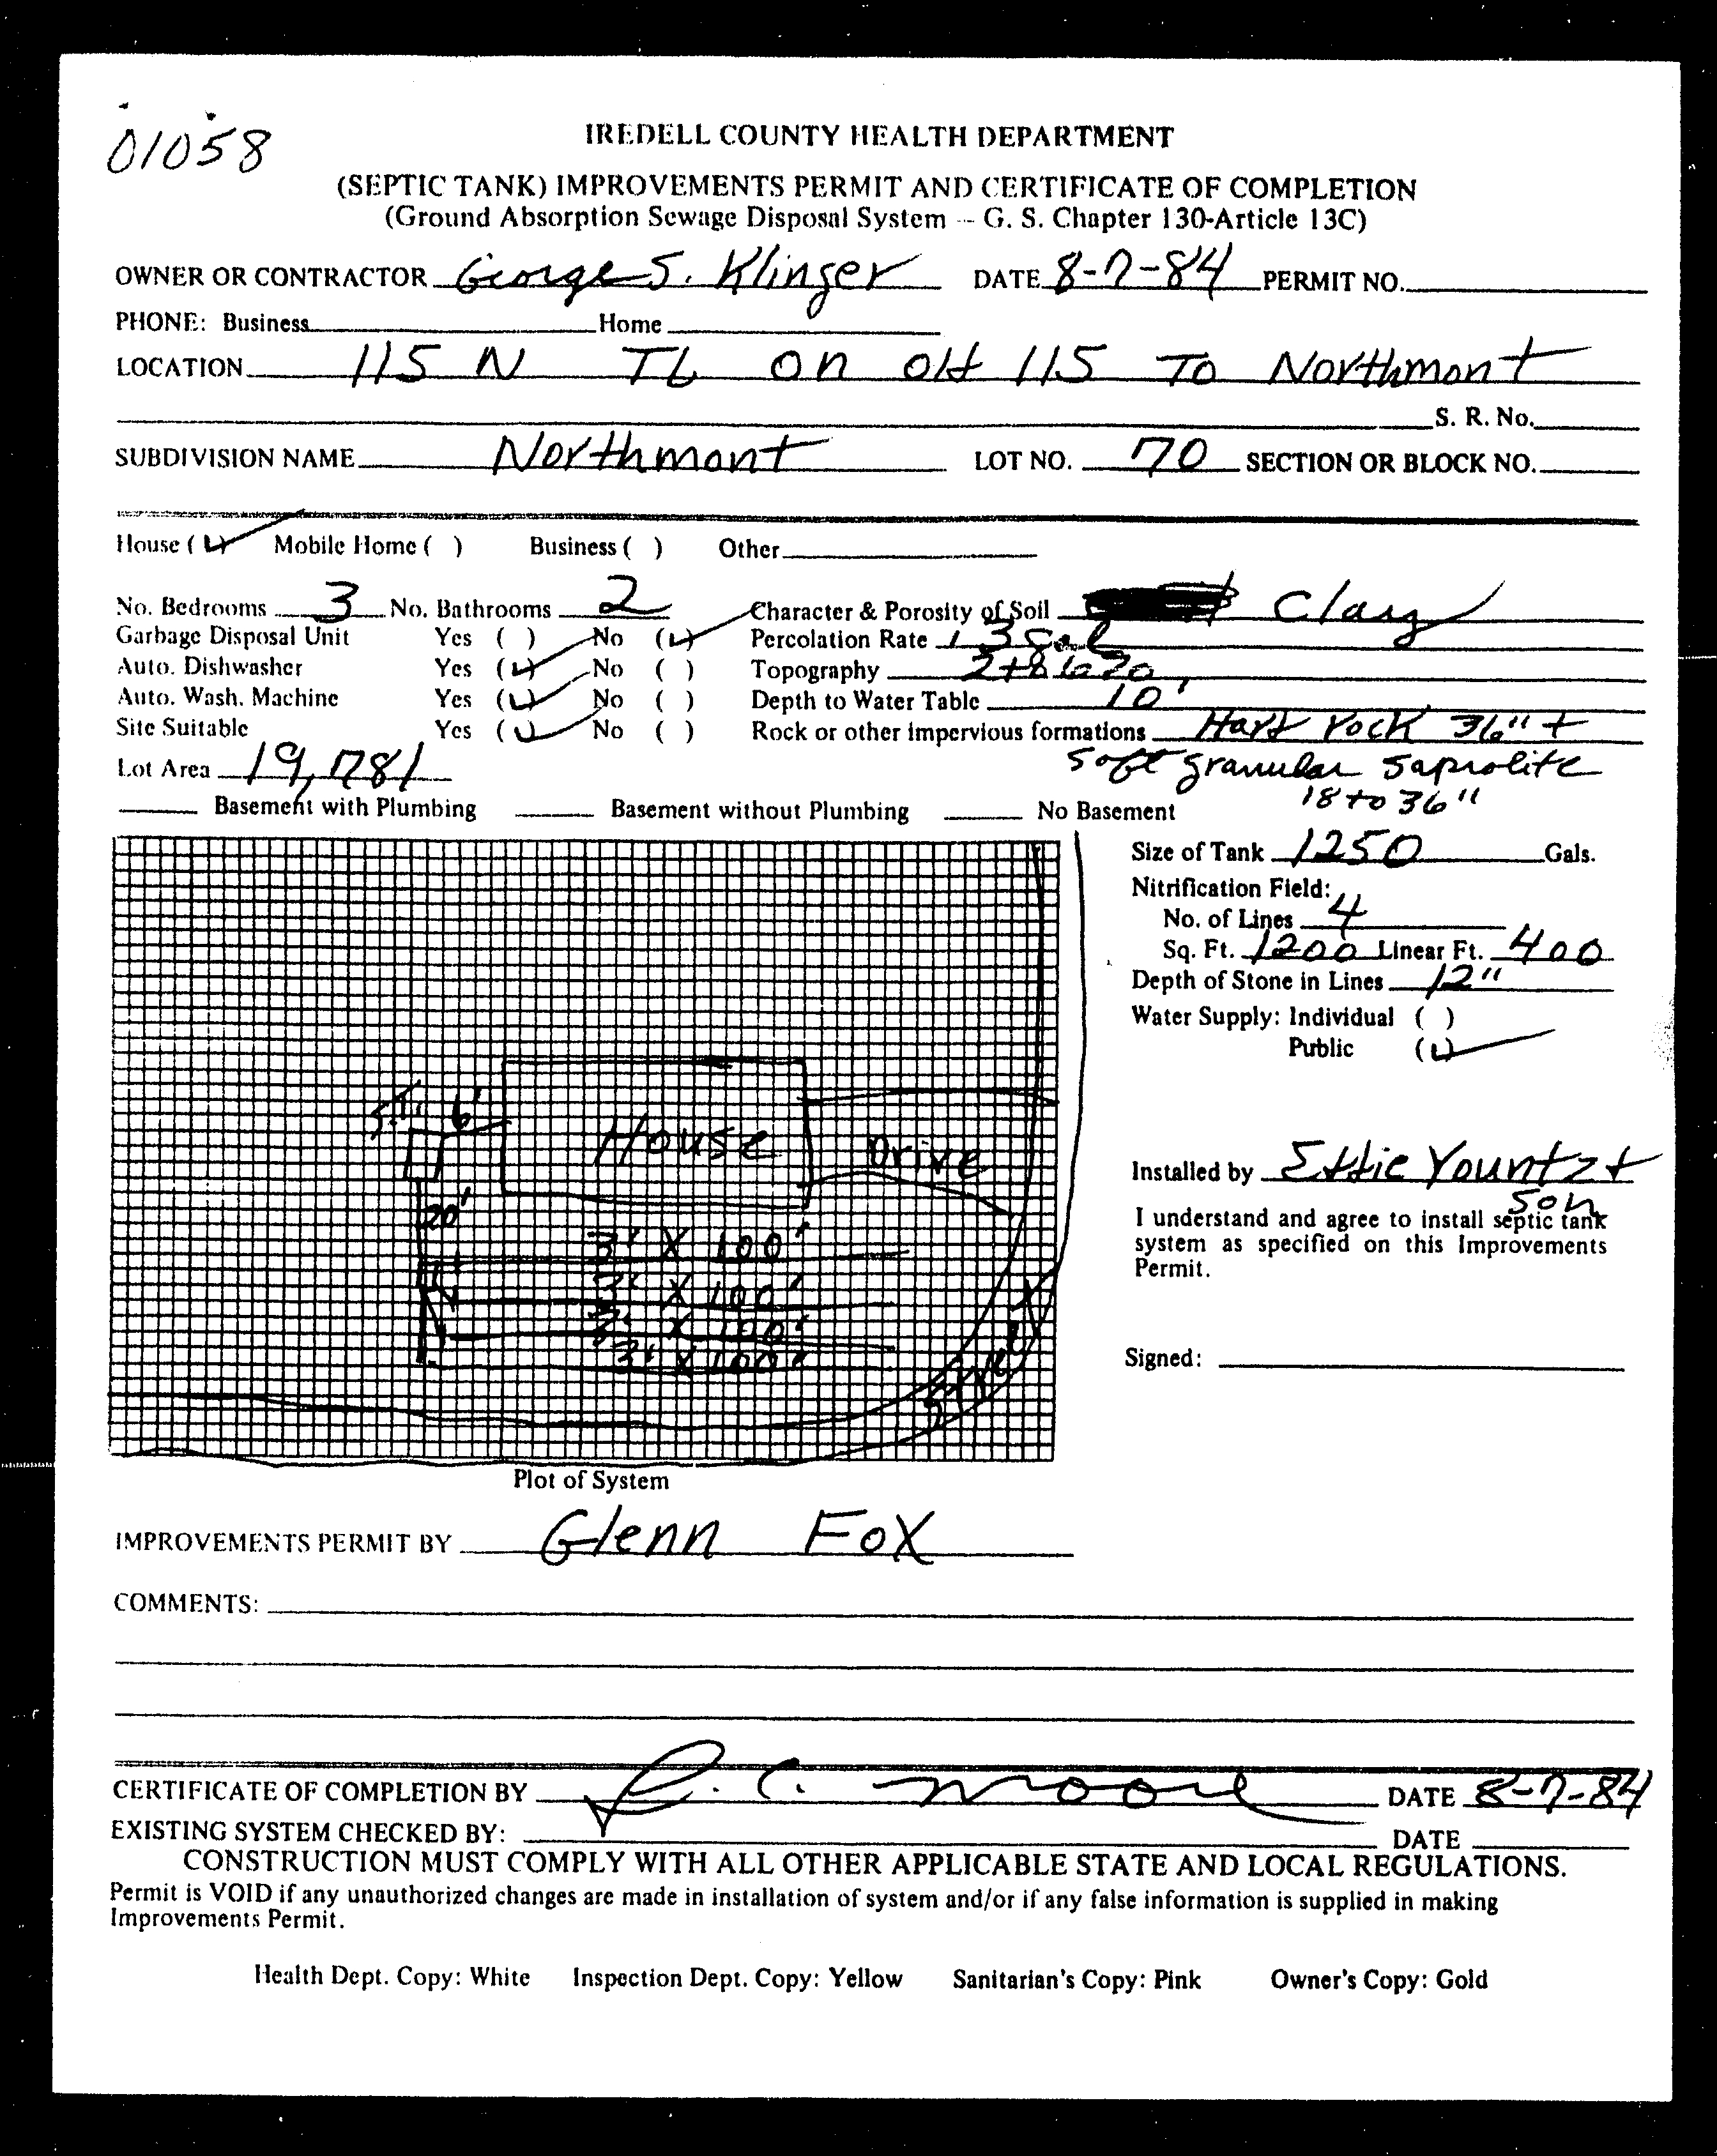 01058
IREDELL COUNTY HEALTH DEPARTMENT
(SEPTIC TANK) IMPROVEMENTS PERMIT AND CERTIFICATE OF COMPLETION
(Ground Absorption Sewage Disposal System -- G. S. Chapter 130-Article 13C)
OWNER OR CONTRACTOR George S. Klinger DATE 8-7-84 PERMIT NO.
PHONE: Business Home
LOCATION 115 N TL on old 115 To Northmont
S. R. No.
SUBDIVISION NAME Northmont LOT NO. 70 SECTION OR BLOCK NO.
House (✓) Mobile Home ( ) Business ( ) Other
No. Bedrooms 3 No. Bathrooms 2 Character & Porosity of Soil Clay
Garbage Disposal Unit Yes ( ) No (✓) Percolation Rate
Auto. Dishwasher Yes (✓) No ( ) Topography
Auto. Wash. Machine Yes (✓) No ( ) Depth to Water Table 10'
Site Suitable Yes (✓) No ( ) Rock or other impervious formations Hard rock 36" +
Lot Area 19,781 Soft granular saprolite
18 to 36"
Basement with Plumbing Basement without Plumbing No Basement
Size of Tank 1250 Gals.
Nitrification Field:
No. of Lines 4
Sq. Ft. 1200 Linear Ft. 400
Depth of Stone in Lines 12"
Water Supply: Individual ( )
Public (✓)
S.T. 6'
House Drive
20'
3' X 100'
3' X 100'
3' X 100'
3' X 100'
Street
Installed by Eddie Yountz +
Son
I understand and agree to install septic tank
system as specified on this Improvements
Permit.
Signed:
Plot of System
IMPROVEMENTS PERMIT BY Glenn Fox
COMMENTS:
CERTIFICATE OF COMPLETION BY R. C. Moore DATE 8-7-84
EXISTING SYSTEM CHECKED BY: DATE
CONSTRUCTION MUST COMPLY WITH ALL OTHER APPLICABLE STATE AND LOCAL REGULATIONS.
Permit is VOID if any unauthorized changes are made in installation of system and/or if any false information is supplied in making
Improvements Permit.
Health Dept. Copy: White Inspection Dept. Copy: Yellow Sanitarian's Copy: Pink Owner's Copy: Gold